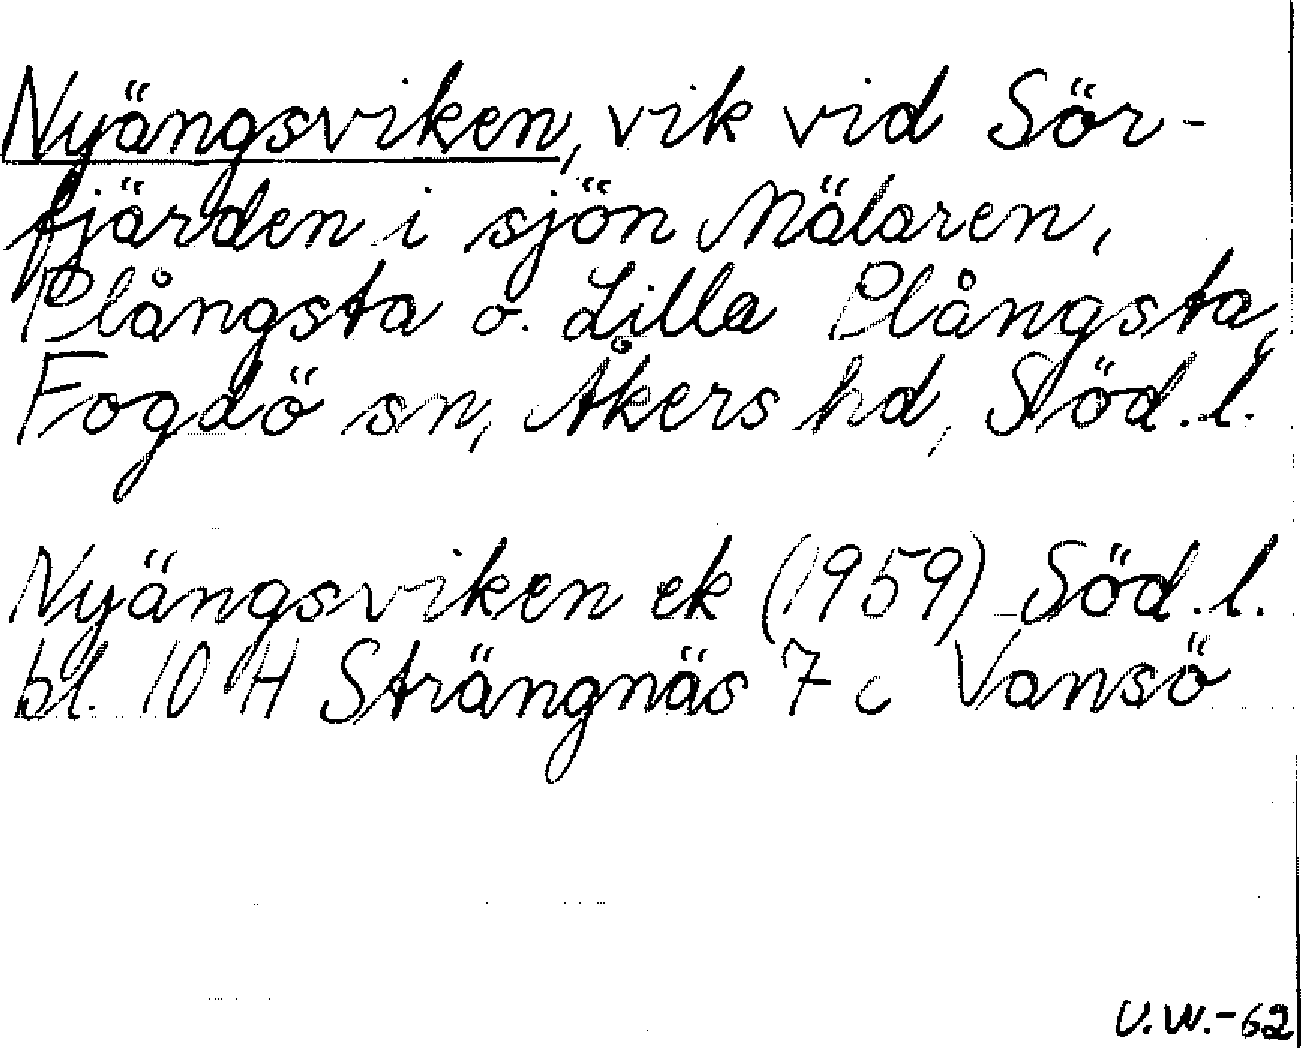 Nyängsviken, vik vid Sör-
fjärden i sjön Mälaren,
Plångsta o. Lilla Plångsta,
Fogdö sn, Åkers hd, Söd. l.
Nyängsviken ek (1959) Söd. l.
bl. 10 H Strängnäs 7 c Vansö
U.W.-62